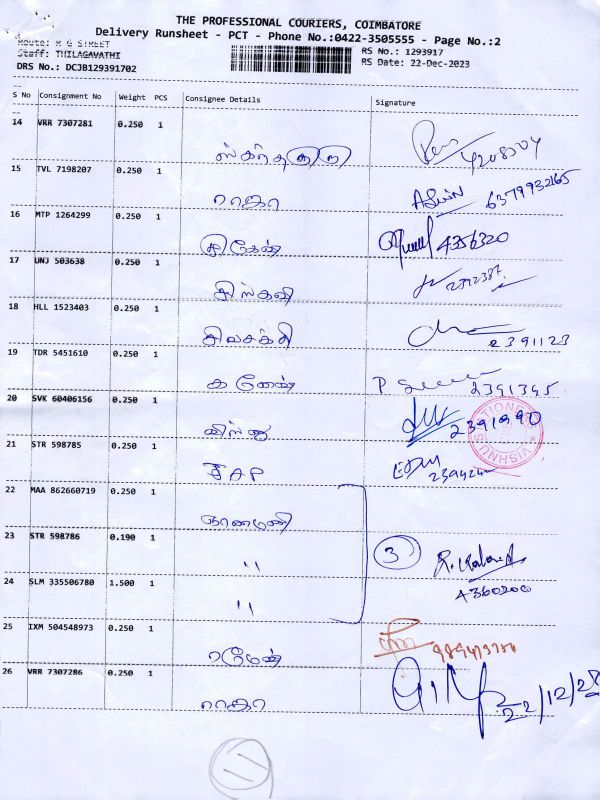 THE PROFESSIONAL COURIERS, COIMBATORE
Delivery Runsheet - PCT - Phone No.:0422-3505555 - Page No.:2
Route: M G STREET
Staff: THILAGAVATHI
DRS No.: DCJB129391702
RS No.: 1293917
RS Date: 22-Dec-2023
S No Consignment No Weight PCS Consignee Details Signature
14 VRR 7307281 0.250 1
4208304
15 TVL 7198207 0.250 1
ராஜா
6379932165
16 MTP 1264299 0.250 1
4356320
17 UNJ 503638 0.250 1
2392387
18 HLL 1523403 0.250 1
சிவசக்தி 2391123
19 TDR 5451610 0.250 1
கணேஷ் 2391395
20 SVK 60406156 0.250 1
2391990
21 STR 598785 0.250 1
22 MAA 862660719 0.250 1
ஞானமணி
23 STR 598786 0.190 1
" 3
24 SLM 335506780 1.500 1
" 4360200
25 IXM 504548973 0.250 1
ரமேஷ்
26 VRR 7307286 0.250 1
ராஜா 22/12/23